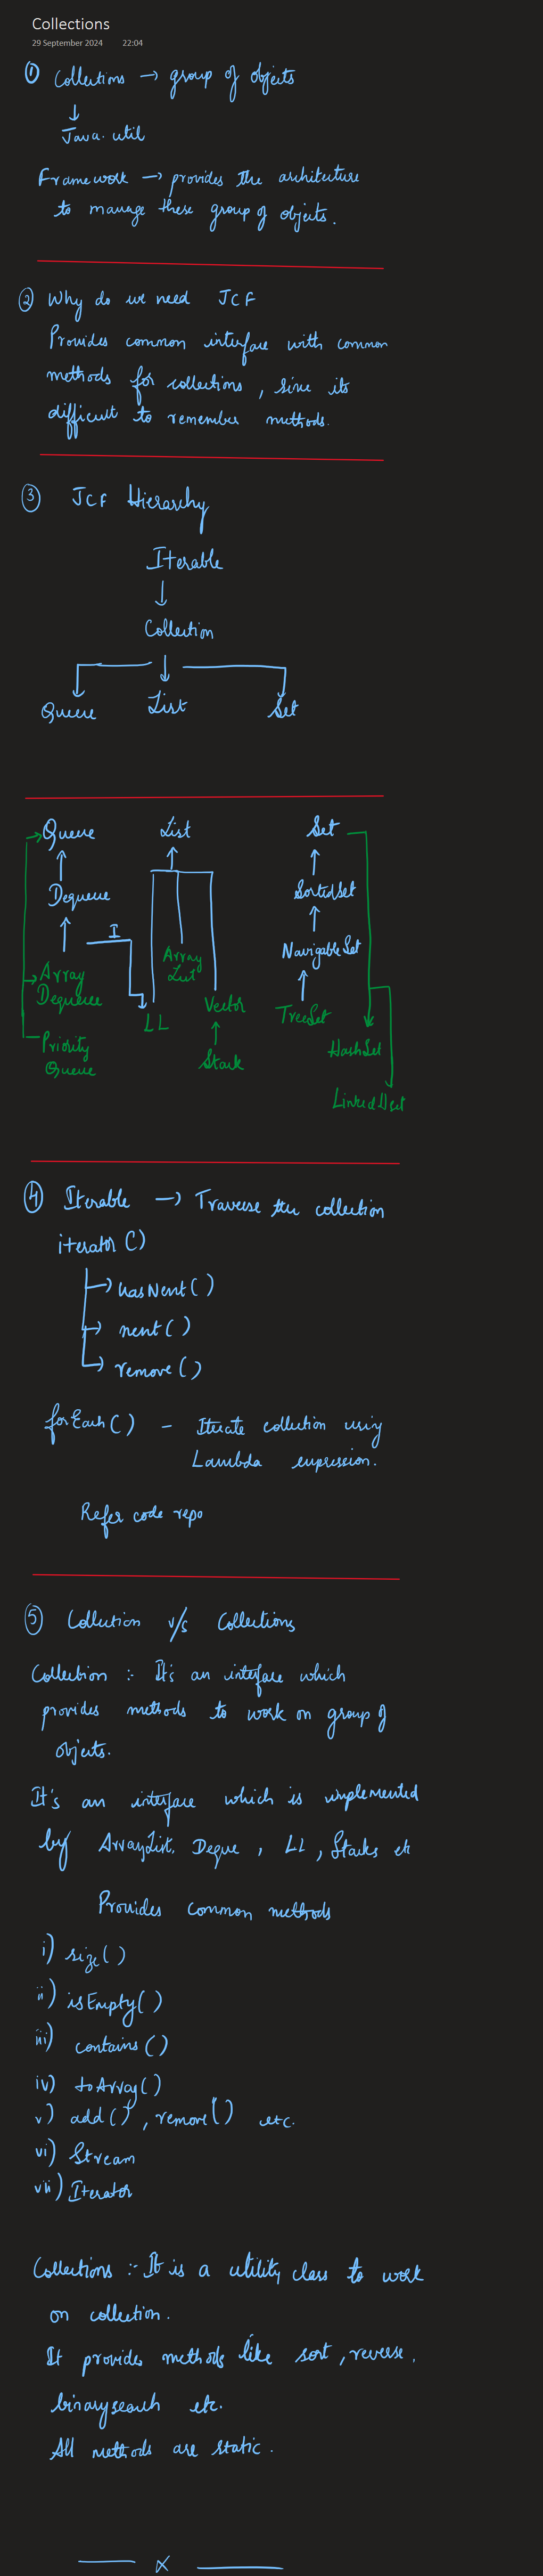 Collections
29 September 2024 22:04
① Collections → group of objects
↓
Java.util
Framework → provides the architecture
to manage these group of objects.
② Why do we need JCF
Provides common interface with common
methods for collections, since its
difficult to remember methods.
③ JCF Hierarchy
Iterable
↓
Collection
Queue List Set
Queue List Set
Dequeue SortedSet
I Array List NavigableSet
Array Dequeue LL Vector TreeSet
Priority Queue Stack HashSet
LinkedHset
④ Iterable → Traverse the collection
iterator()
→ hasNext()
→ next()
→ remove()
forEach() - Iterate collection using
Lambda expression.
Refer code repo
⑤ Collection v/s Collections
Collection :- It's an interface which
provides methods to work on group of
objects.
It's an interface which is implemented
by ArrayList, Deque, LL, Stacks etc
Provides common methods
i) size()
ii) isEmpty()
iii) contains()
iv) toArray()
v) add(), remove() etc.
vi) Stream
vii) Iterator
Collections :- It is a utility class to work
on collection.
It provides methods like sort, reverse,
binarysearch etc.
All methods are static.
— x —